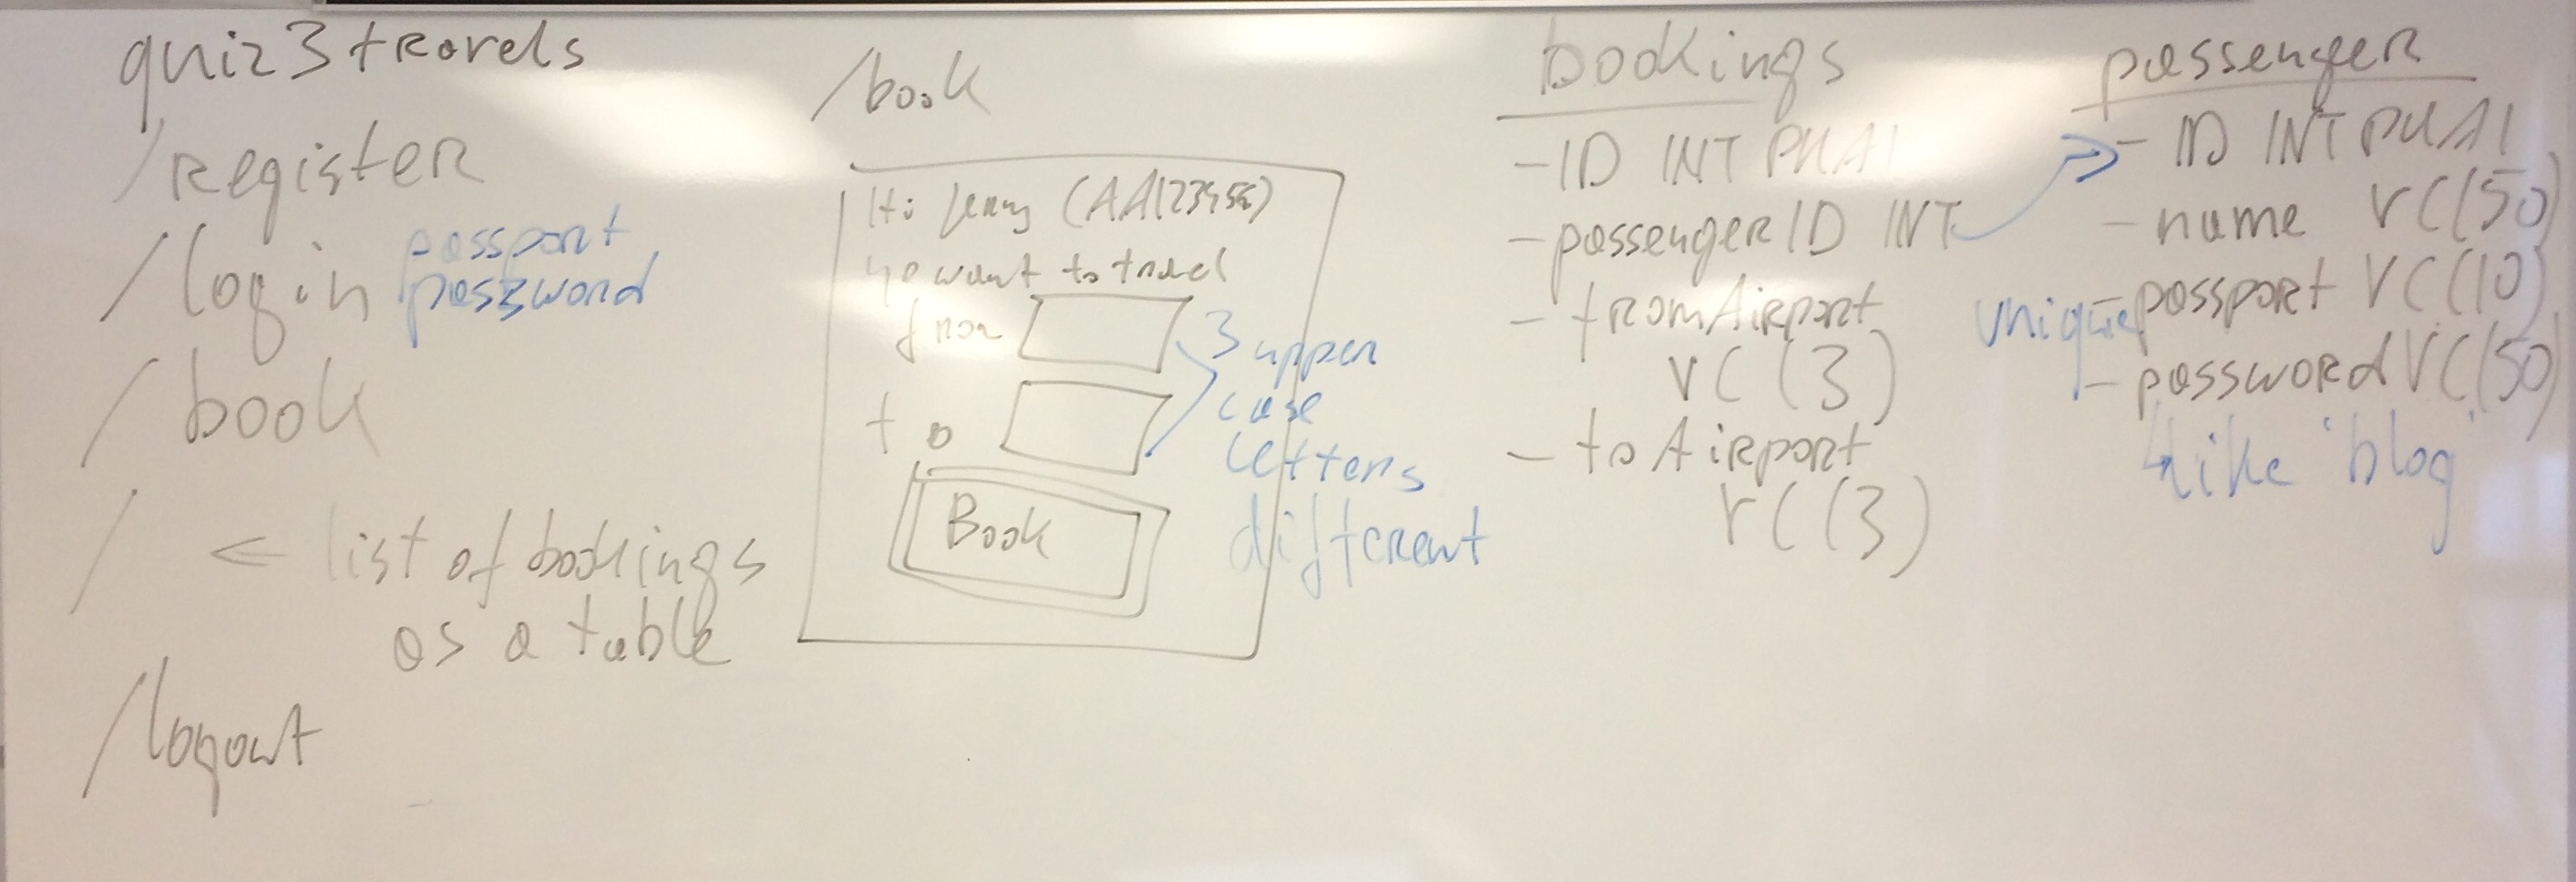 quiz3travels
/register
/login passport
password
/book
/ ← list of bookings
as a table
/logout
/book
Hi Jerry (AA123456)
yo want to travel
from
to
3 upper
case
letters
different
Book
bookings
- ID INT PKAI
- passengerID INT
- fromAirport
VC(3)
- toAirport
VC(3)
passenger
- ID INT PKAI
- name VC(50)
unique - passport VC(10)
- password VC(50)
like 'blog'